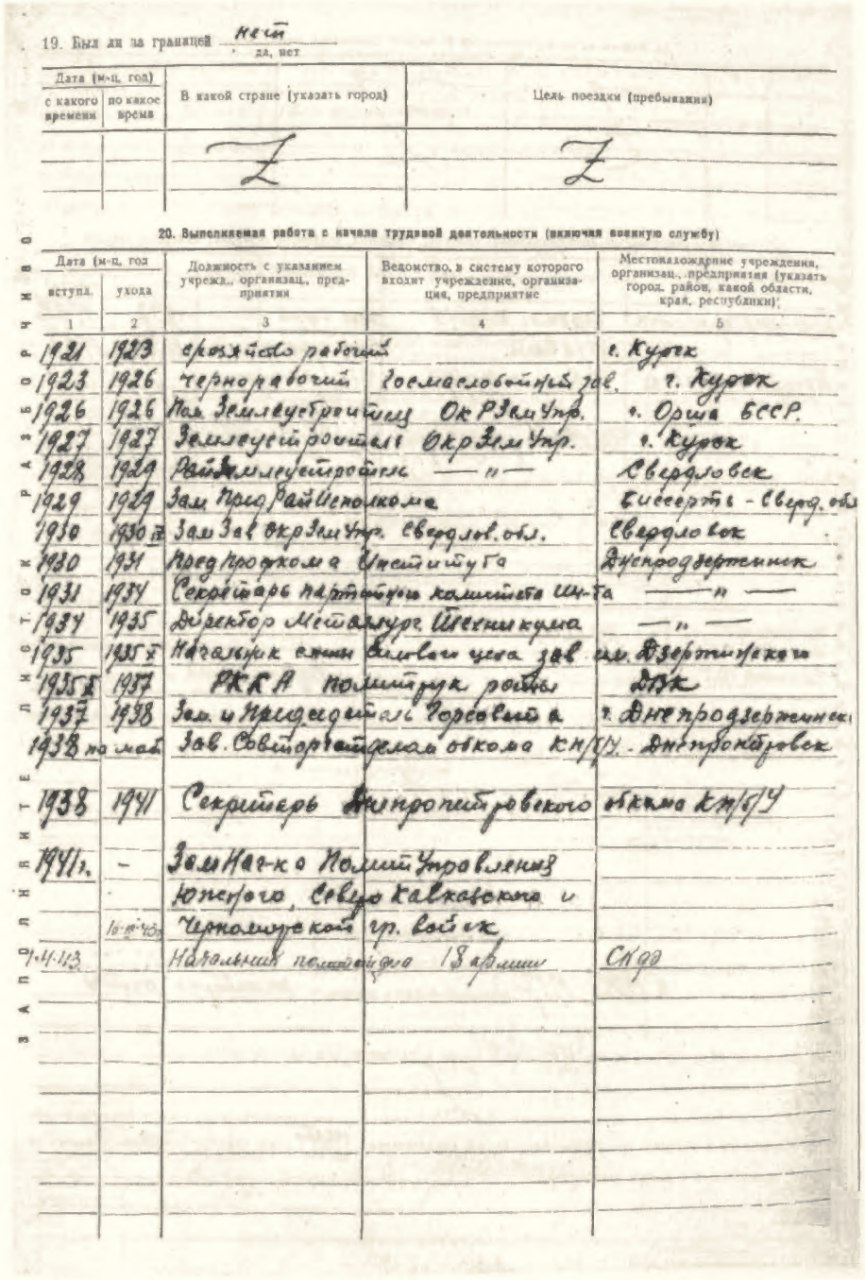 19. Был ли за границей нет
да, нет
Дата (м-ц, год)
с какого времени
по какое время
В какой стране (указать город)
Цель поездки (пребывания)
Z Z
20. Выполняемая работа с начала трудовой деятельности (включая военную службу)
Дата (м-ц, год
вступл.
ухода
Должность с указанием учрежд., организац., предприятия
Ведомство, в систему которого входит учреждение, организация, предприятие
Местонахождение учреждения, организац., предприятия (указать город, район, какой области, края, республики);
1 2 3 4 5
1921 1923 рабочий г. Курск
1923 1926 чернорабочий Госмаслобойный зав. г. Курск
1926 1926 Пом. Землеустроителя ОкРЗемУпр. г. Орша БССР.
1927 1927 Землеустроитель ОкрЗемУпр. г. Курск
1928 1929 РайЗемлеустроитель — " — Свердловск
1929 1929 Зам Пред РайИсполкома Биссерть - Сверд. обл
1930 1930 Зам Зав ОкрЗемУпр. Свердлов. обл. Свердловск
1930 1931 Пред Профкома Института Днепродзержинск
1931 1934 Секретарь партийного комитета Ин-та — " —
1934 1935 Директор Металлург. Техникума — " —
1935 1935 X Начальник смены Силового цеха зав им. Дзержинского
1935 X 1937 РККА политрук роты ДВК
1937 1938 Зам. и Председатель Горсовета г. Днепродзержинск
1938 по май Зав. Совторготделом обкома КП/б/У. - Днепропетровск
1938 1941 Секретарь Днепропетровского обкома КП/б/У
1941 г. - Зам Нач-ка ПолитУправления
Южского, Северо Кавказского и
Черноморской гр. войск
1.4.43 Начальник политотдела 18 армии СКФ
ЗАПОЛНЯЙТЕ ЛИСТОК РАЗБОРЧИВО